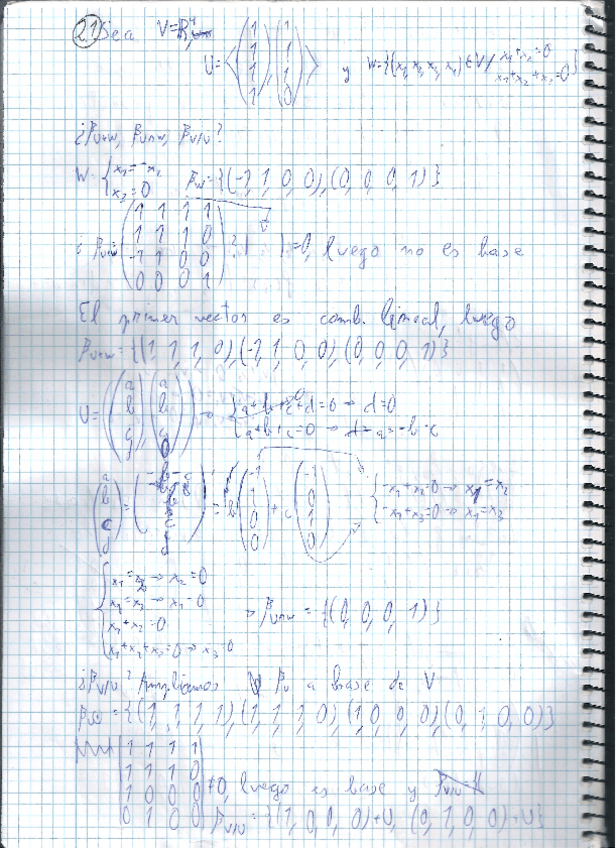 21 Sea V=R⁴
U=<(1 1 1 1), (1 1 1 0)> y W={(x₁,x₂,x₃,x₄)∈V/ x₁+x₂=0 x₁+x₂+x₃=0}
¿β_U+W, β_U∩W, β_V/U?
W: {x₁=-x₂ x₃=0 β_W={(-1,1,0,0),(0,0,0,1)}
¿β_U+W= (1 1 1 1
1 1 1 0
-1 1 0 0
0 0 0 1)? | |=0, luego no es base
El primer vector es comb. lineal, luego
β_U+W={(1,1,1,0),(-1,1,0,0),(0,0,0,1)}
{a+b+c+d=0 → d=0
{a+b+c=0 → a=-b-c
(a b c d) = = b(-1 1 0 0) + c(-1 0 1 0) {-x₁+x₂=0 → x₁=x₂
-x₁+x₃=0 → x₁=x₃
x₂=0
x₁=0
x₁+x₂=0
x₁+x₂+x₃=0 → x₃=0
→ β_U∩W = {(0,0,0,1)}
¿β_V/U? Ampliamos β_U a base de V
={(1,1,1,1),(1,1,1,0),(1,0,0,0),(0,1,0,0)}
|1 1 1 1
1 1 1 0
1 0 0 0
0 1 0 0| ≠0, luego es base y
β_V/U={(1,0,0,0)+U, (0,1,0,0)+U}